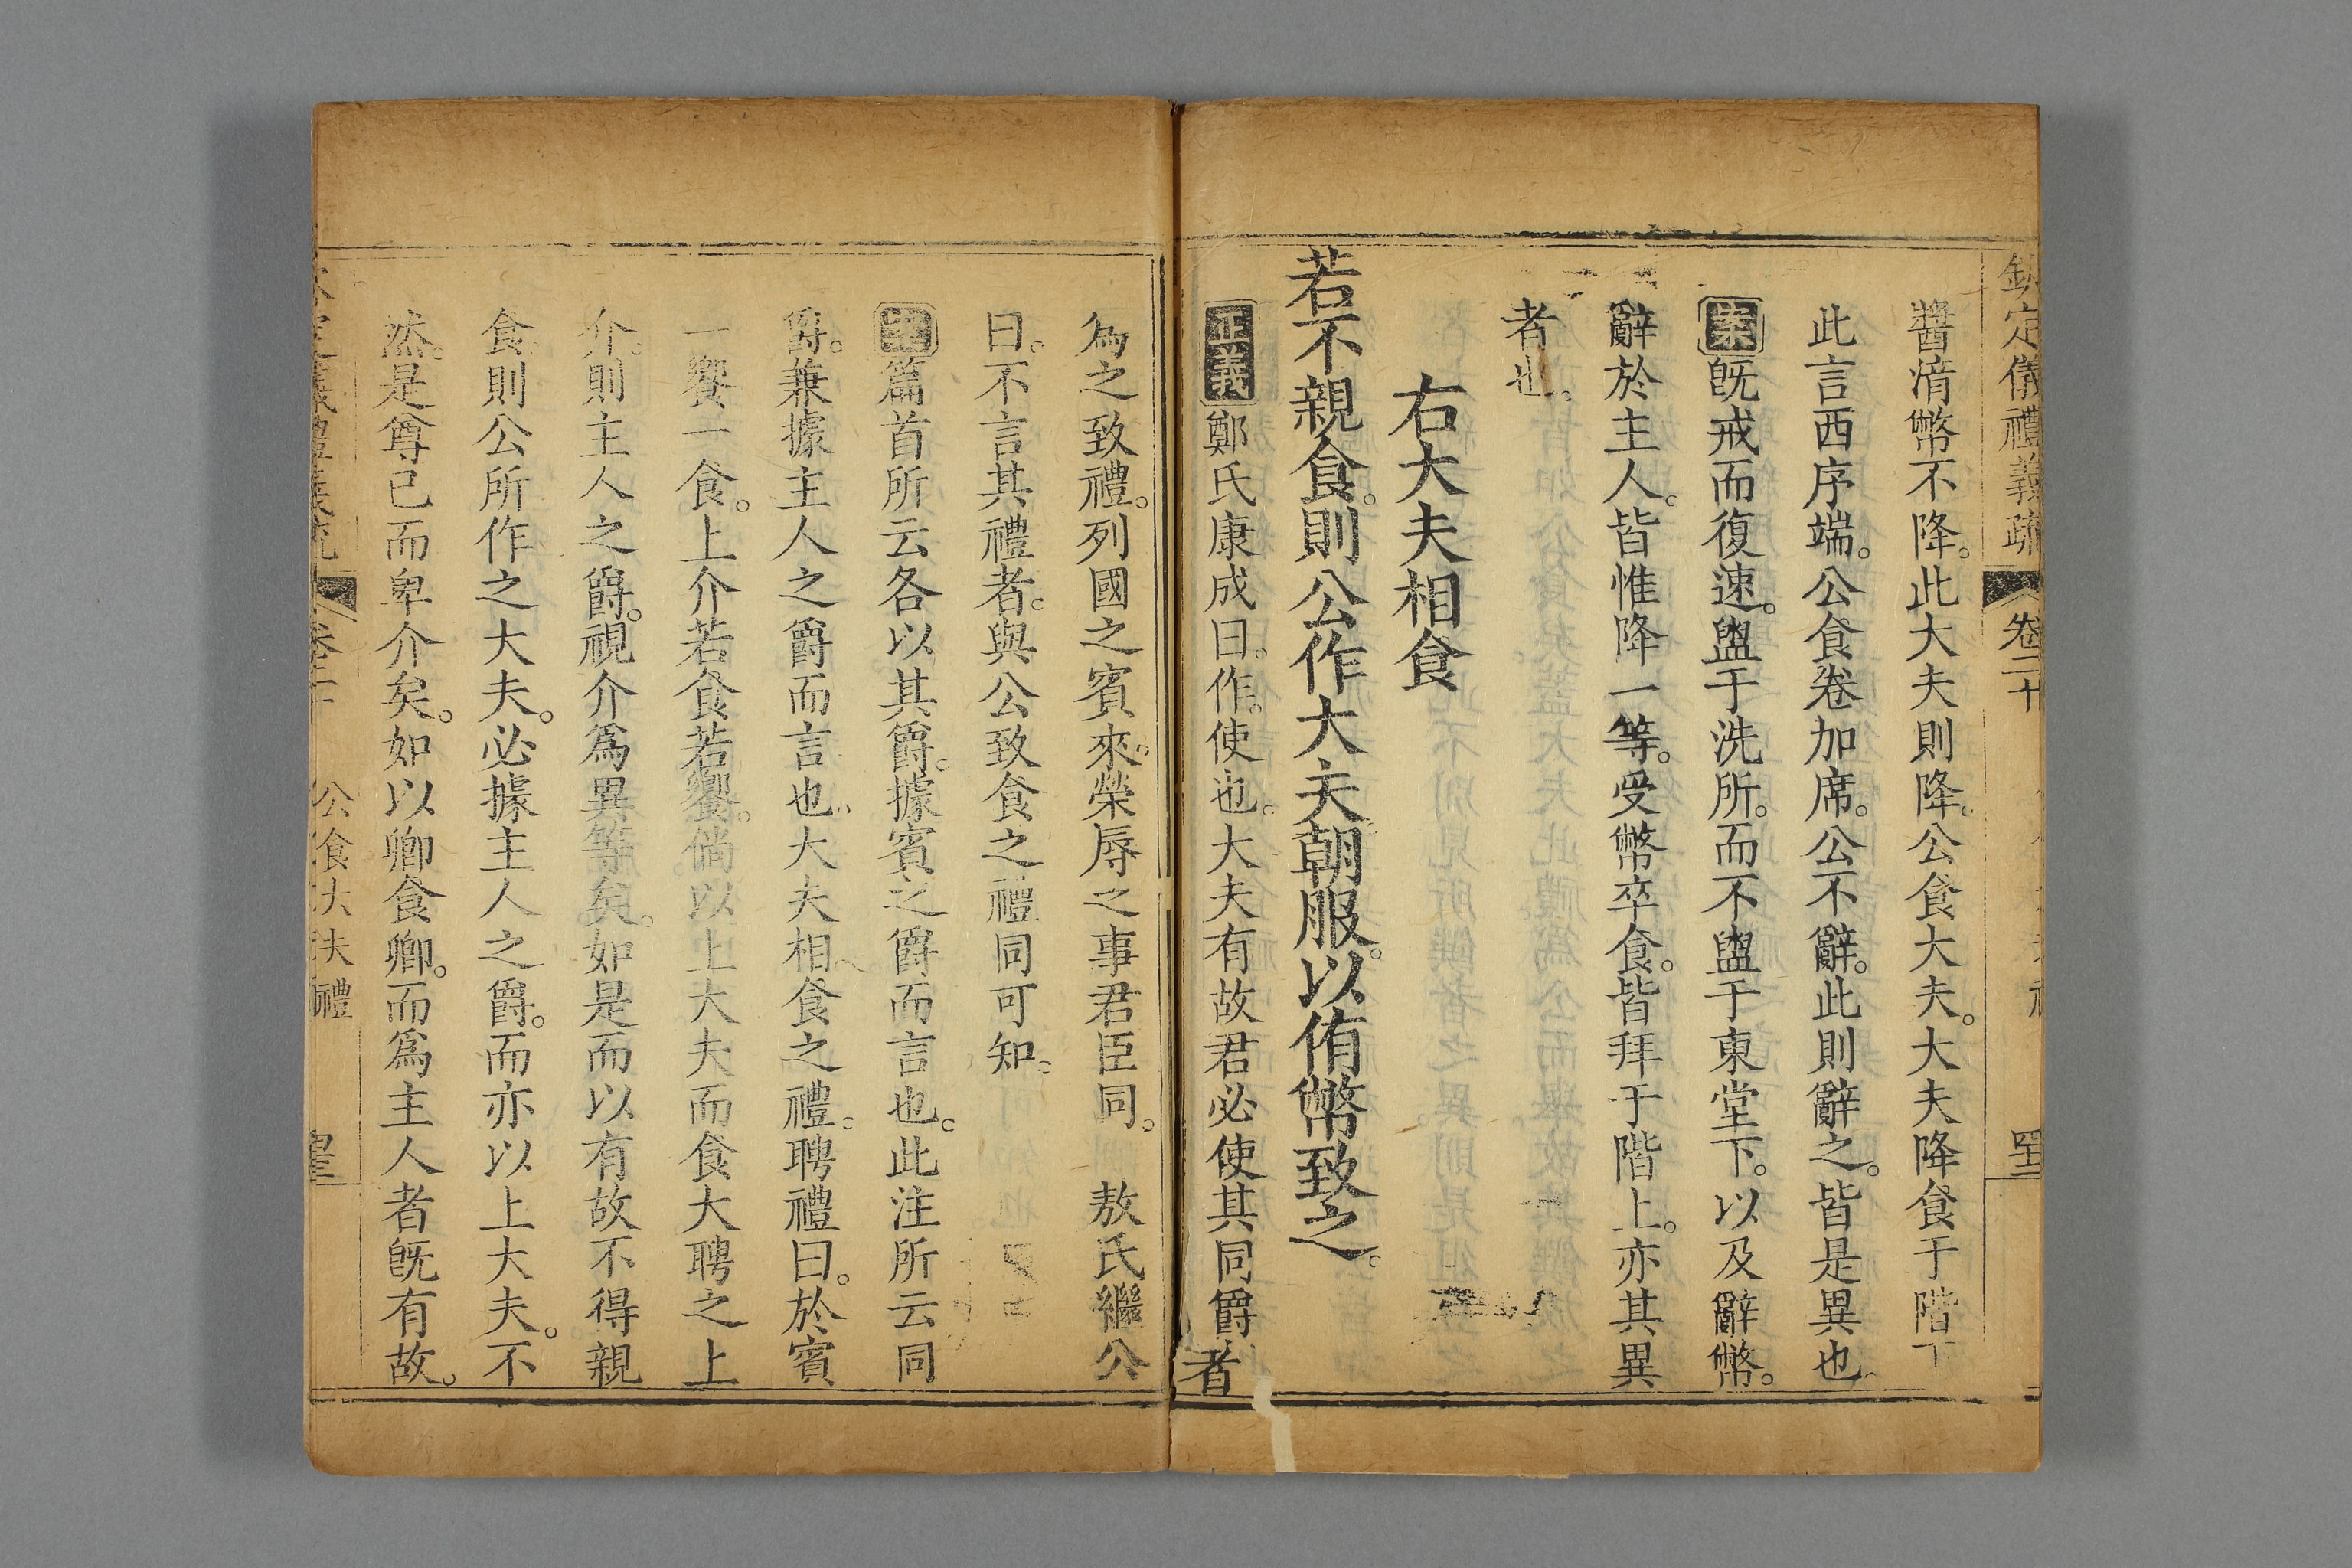 欽定儀禮義疏 卷二十
醬湆幣不降。此大夫則降。公食大夫。大夫降食于階下
此言西序端。公食卷加席。公不辭。此則辭之。皆是異也。
案旣戒而復速。盥于洗所。而不盥于東堂下。以及辭幣。
辭於主人。皆惟降一等。受幣卒食。皆拜于階上。亦其異
者也。
右大夫相食
若不親食。則公作大夫朝服。以侑幣致之。
正義鄭氏康成曰。作。使也。大夫有故君必使其同爵者
為之致禮。列國之賓來。榮辱之事君臣同。 敖氏繼公
曰。不言其禮者。與公致食之禮同可知。
案篇首所云各以其爵。據賓之爵而言也。此注所云同
爵。兼據主人之爵而言也。大夫相食之禮。聘禮曰。於賓
一饗一食。上介若食若饗。倘以上大夫而食大聘之上
介。則主人之爵。視介爲異等矣。如是而以有故不得親
食則公所作之大夫。必據主人之爵。而亦以上大夫。不
然。是尊己而卑介矣。如以卿食卿。而爲主人者旣有故。
卷二十 公食大夫禮